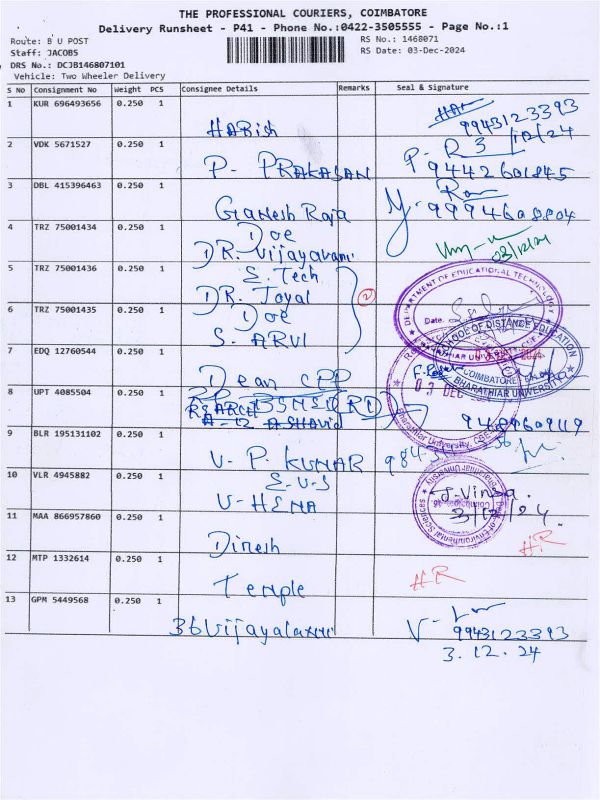 THE PROFESSIONAL COURIERS, COIMBATORE
Delivery Runsheet - P41 - Phone No.:0422-3505555 - Page No.:1
Route: B U POST
RS No.: 1468071
Staff: JACOB5
RS Date: 03-Dec-2024
DRS No.: DCJB146807101
Vehicle: Two Wheeler Delivery
S No Consignment No Weight PCS Consignee Details Remarks Seal & Signature
1 KUR 696493656 0.250 1
HARISH 9943123393
3/12/24
2 VDK 5671527 0.250 1
P. PRAKASAN 9442601845
3 DBL 415396463 0.250 1
Ganesh Raja 9994608804
4 TRZ 75001434 0.250 1 DOE
DR. Vijayarani 03/12/24
5 TRZ 75001436 0.250 1 E. Tech
DR. Joyal 2
6 TRZ 75001435 0.250 1 DOE
S. ARUL
DEPARTMENT OF EDUCATIONAL TECHNOLOGY
Date.
SCHOOL OF DISTANCE EDUCATION
COIMBATORE
BHARATHIAR UNIVERSITY
7 EDQ 12760544 0.250 1
Dean CPP
03 DEC
Bharathiar University, CBE
8 UPT 4085504 0.250 1
9489609119
9 BLR 195131102 0.250 1
V. P. KUMAR
10 VLR 4945882 0.250 1 E.V.S
V. HEMA J. Vinsa.
3/12/24
Dept. of Environmental Sciences
Bharathiar University
11 MAA 866957860 0.250 1
Dinesh HR
12 MTP 1332614 0.250 1
Temple HR
13 GPM 5449568 0.250 1
36 Vijayalaxmi 9943123393
3.12.24